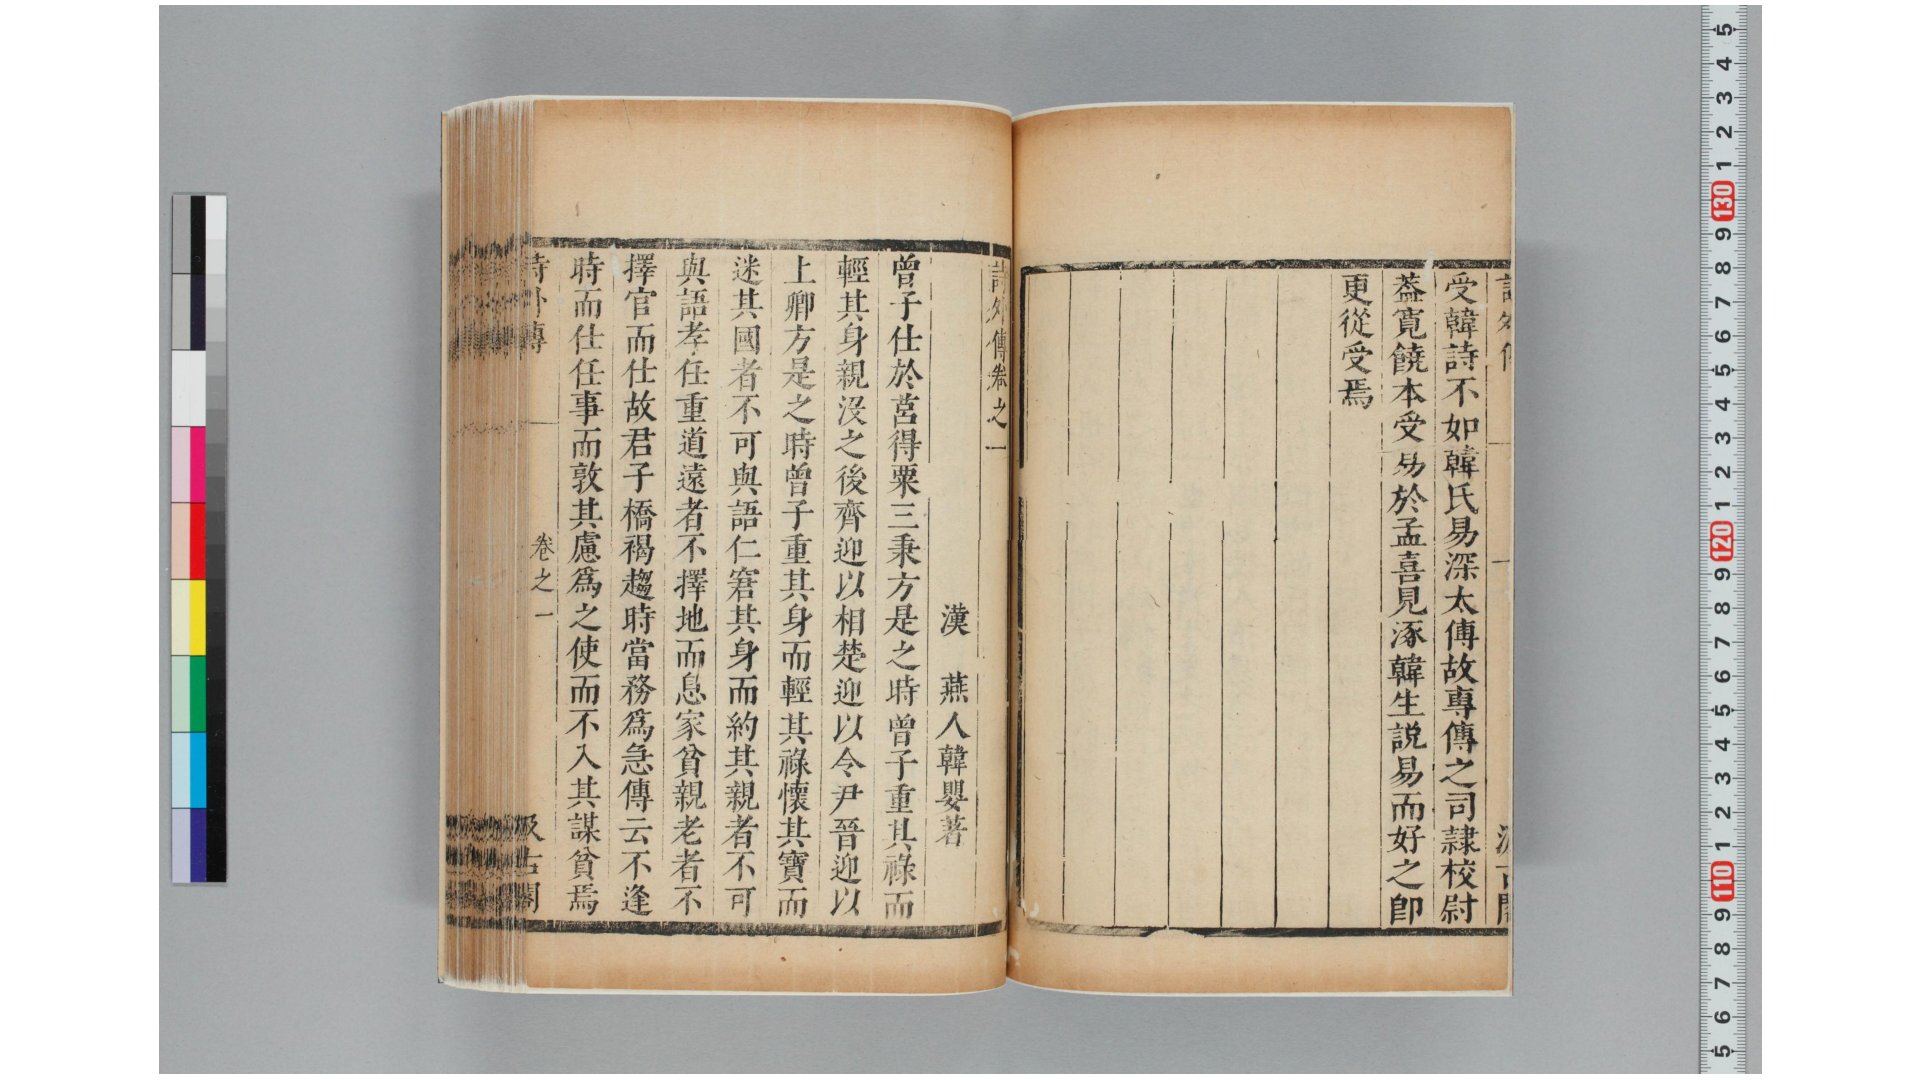 受韓詩不如韓氏易深太傅故專傳之司隸校尉
葢寬饒本受易於孟喜見涿韓生説易而好之卽
更從受焉
詩外傳卷之一
漢　燕人韓嬰著
曾子仕於莒得粟三秉方是之時曾子重其祿而
輕其身親沒之後齊迎以相楚迎以令尹晉迎以
上卿方是之時曾子重其身而輕其祿懷其寶而
迷其國者不可與語仁窘其身而約其親者不可
與語孝任重道遠者不擇地而息家貧親老者不
擇官而仕故君子橋褐趨時當務爲急傳云不逢
時而仕任事而敦其慮爲之使而不入其謀貧焉
詩外傳
卷之一
汲古閣
5
4
3
2
1
130
9
8
7
6
5
4
3
2
1
120
9
8
7
6
5
4
3
2
1
110
9
8
7
6
5